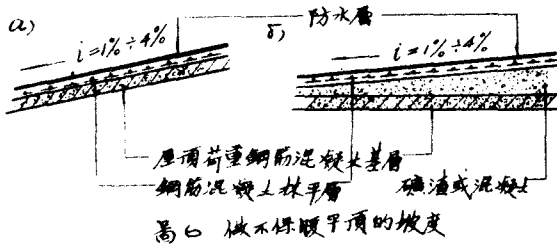 a)
б)
防水層
i=1%÷4%
i=1%÷4%
屋頂荷重鋼筋混凝土基層
鋼筋混凝土抹平層
礦渣或混凝土
做不保暖平頂的坡度